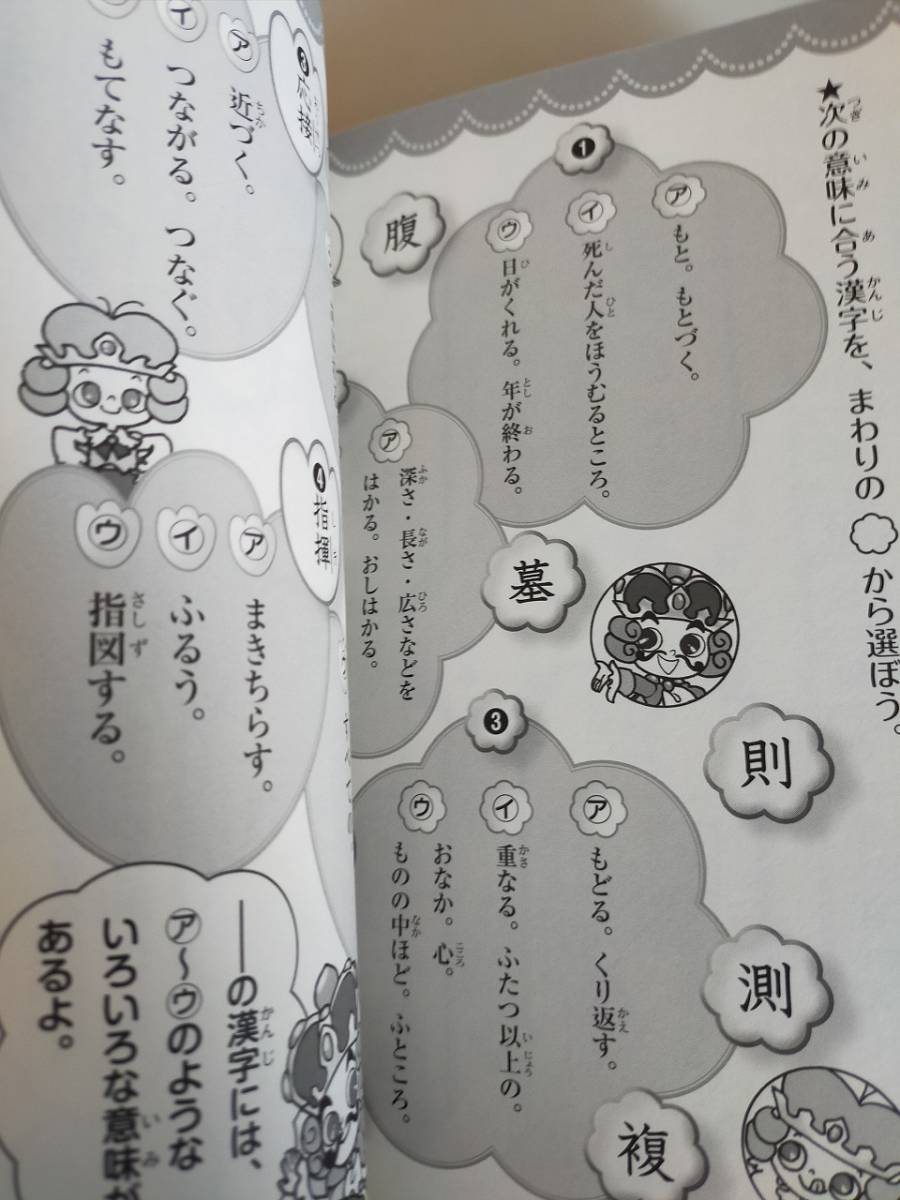 ★次の意味に合う漢字を、まわりの から選ぼう。
❶
㋐ もと。もとづく。
㋑ 死んだ人をほうむるところ。
㋒ 日がくれる。年が終わる。
腹
墓
則
測
複
㋐ 深さ・長さ・広さなどを
はかる。おしはかる。
❸
㋐ もどる。くり返す。
㋑ 重なる。ふたつ以上の。
㋒ おなか。心。
ものの中ほど。ふところ。
❸応接
㋐ 近づく。
㋑ つながる。つなぐ。
もてなす。
❹指揮
㋐ まきちらす。
㋑ ふるう。
㋒ 指図する。
――の漢字には、
㋐〜㋒のような
いろいろな意味が
あるよ。